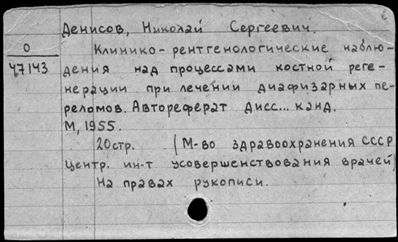 Денисов, Николай Сергеевич.
О
47143
Клинико-рентгенологические наблю-
дения над процессами костной реге-
нерации при лечении диафизарных пе-
реломов. Автореферат дисс... канд.
М, 1955.
20стр. (М-во здравоохранения СССР
Центр. ин-т усовершенствования врачей)
На правах рукописи.